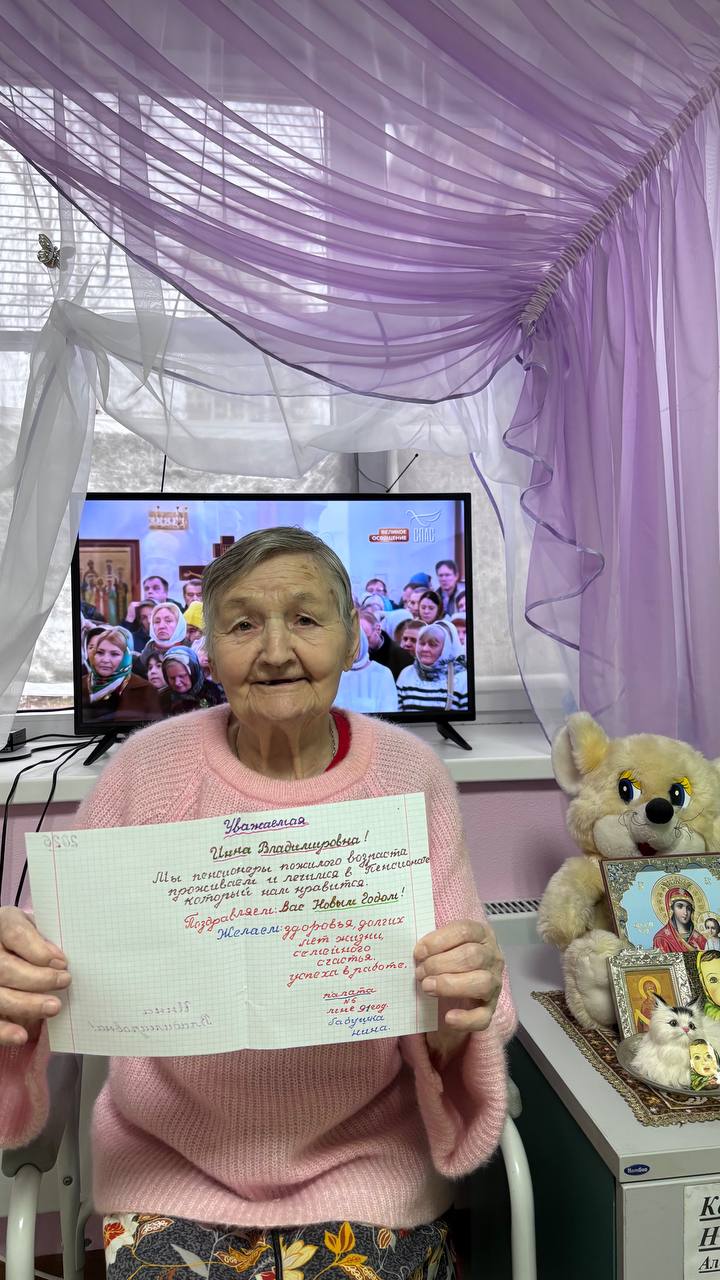 ВЕЛИКОЕ
ОСВЯЩЕНИЕ
СПАС
Уважаемая
Инна Владимировна!
Мы пенсионеры пожилого возраста
проживаем и лечимся в Пенсионате
который нам нравится.
Поздравляем: Вас Новым Годом!
Желаем: здоровья, долгих
лет жизни,
семейного
счастья.
успеха в работе.
палата
№6
мне 91 год.
бабушка
нина.
2026
Инна
Владимировна